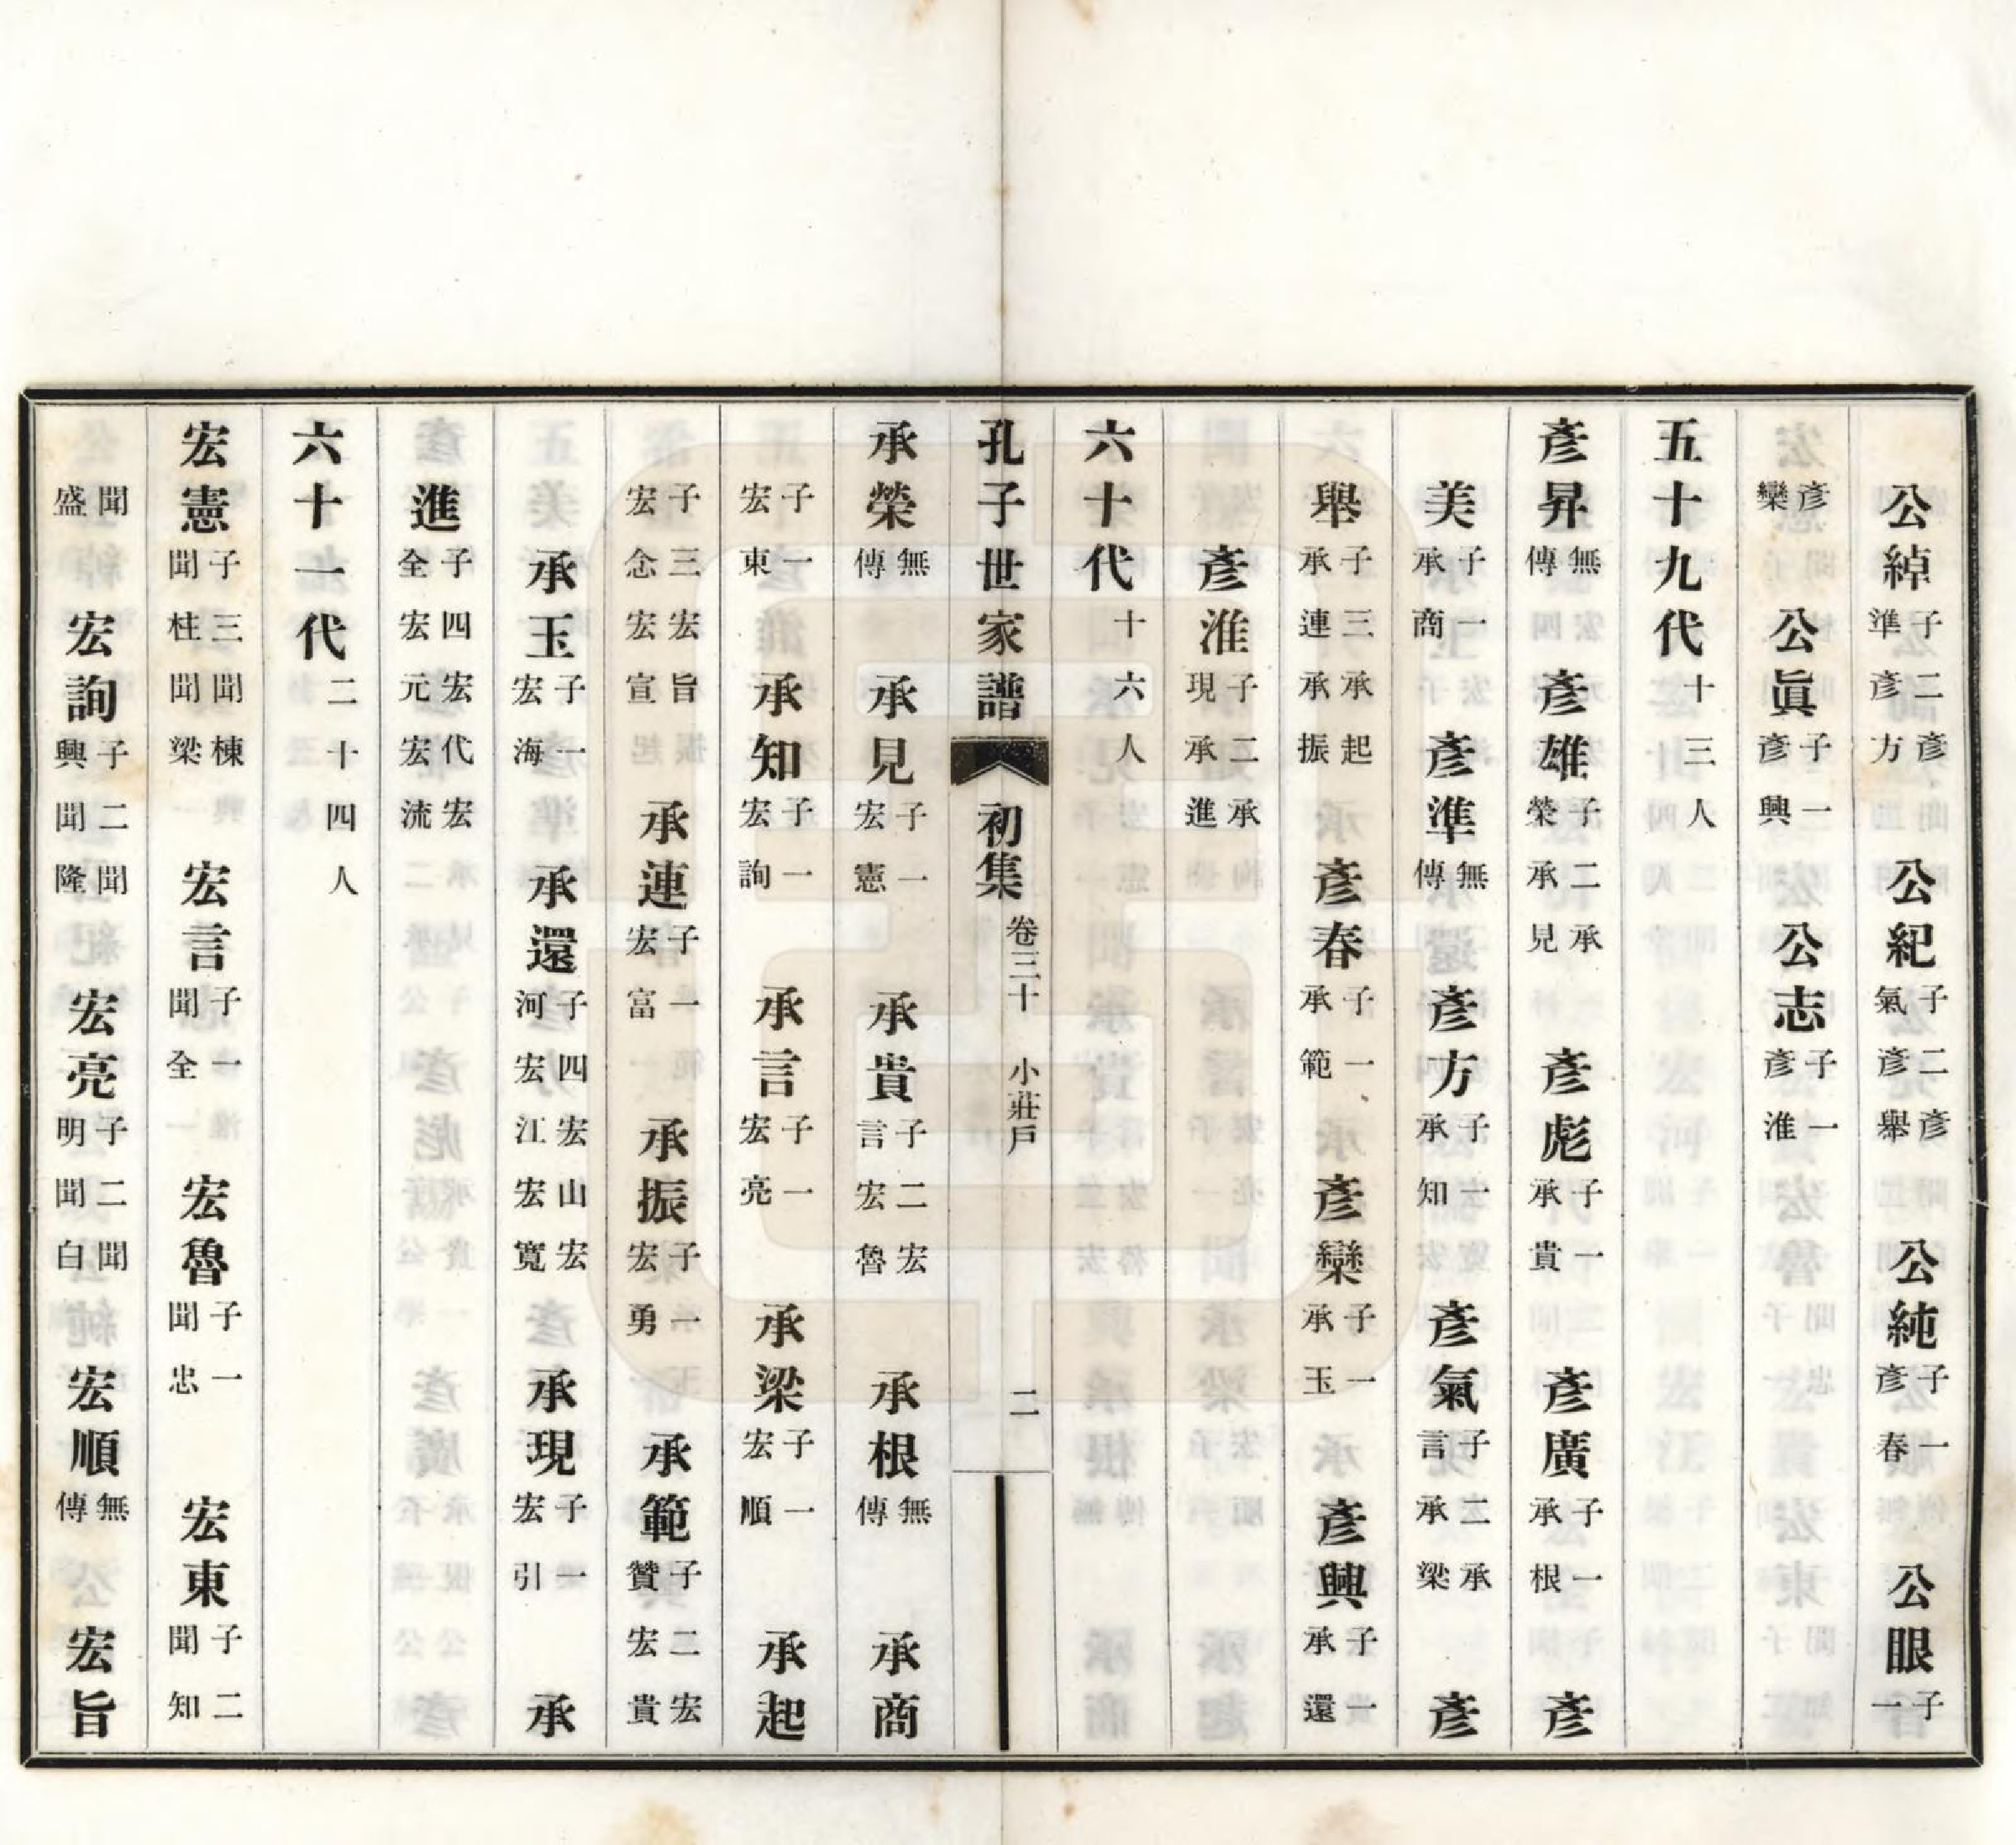 公綽子二彥準彥方　公紀子二彥氣彥舉　公純子一彥春　公眼子一
彥欒　公眞子一彥興　公志子一彥淮
五十九代十三人
彥昇無傳　彥雄子二承榮承見　彥彪子一承貴　彥廣子一承根　彥
美子一承商　彥準無傳　彥方子一承知　彥氣子二承言承梁　彥
舉子三承起承連承振　彥春子一承範　彥欒子一承玉　彥興子一承還
彥淮子二承現承進
六十代十六人
孔子世家譜　初集　卷三十　小莊戶　二
承榮無傳　承見子一宏憲　承貴子二宏言宏魯　承根無傳　承商
子一宏東　承知子一宏詢　承言子一宏亮　承梁子一宏順　承起
子三宏旨宏念宏宣　承連子一宏富　承振子一宏勇　承範子二宏贊宏貴
承玉子一宏海　承還子四宏山宏河宏江宏寬　承現子一宏引　承
進子四宏代宏全宏元宏流
六十一代二十四人
宏憲子三聞棟聞柱聞梁　宏言子一聞全　宏魯子一聞忠　宏東子二聞知
聞盛　宏詢子二聞興聞隆　宏亮子二聞明聞白　宏順無傳　宏旨